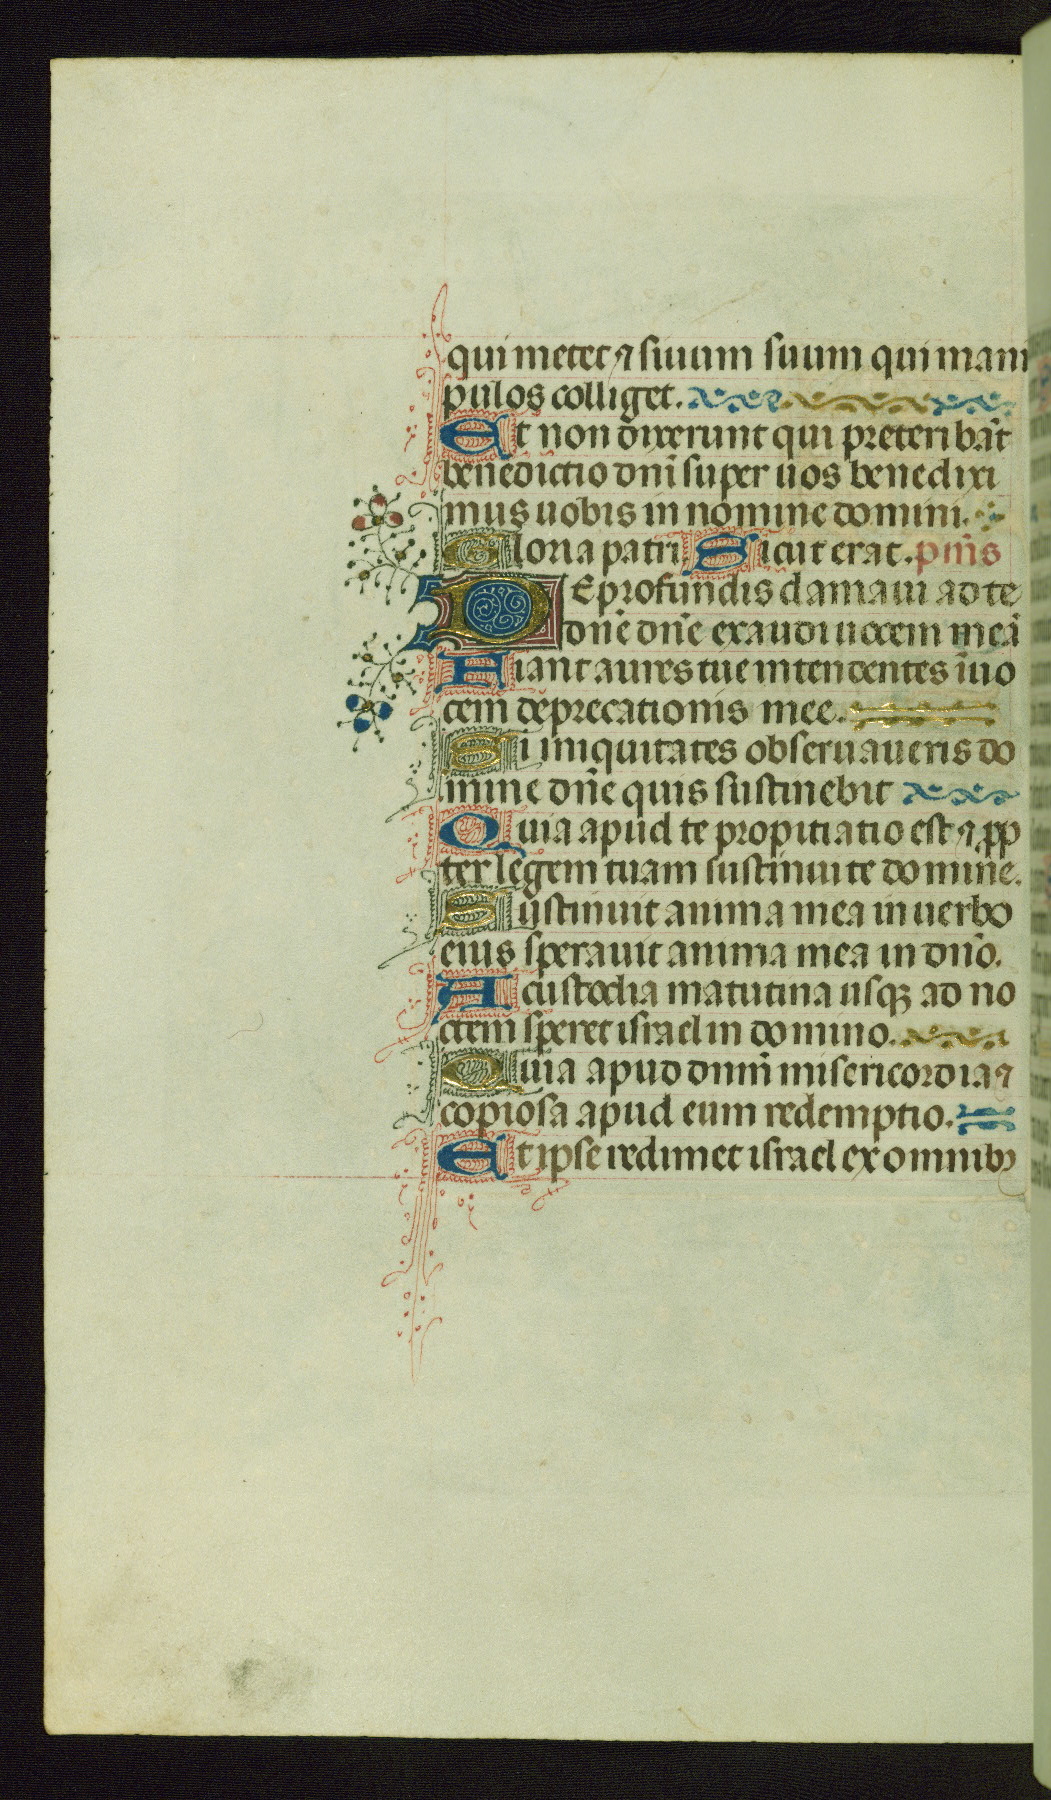 qui metet ⁊ sinum suum qui mani
pulos colliget.
Et non dixerunt qui preteribāt
benedictio dn̄i super uos benedixi
mus uobis in nomine domini.
Gloria patri Sicut erat. pm̄s
De profundis clamaui ad te
dn̄e dn̄e exaudi uocem meā
Fiant aures tue intendentes ī uo
cem deprecationis mee.
Si iniquitates obseruaueris do
mine dn̄e quis sustinebit
Quia apud te propitiatio est ⁊ ꝓp
ter legem tuam sustinui te domine.
Sustinuit anima mea in uerbo
eius sperauit anima mea in dn̄o.
A custodia matutina usqꝫ ad no
ctem speret israel in domino.
Quia apud dnm̄ misericordia ⁊
copiosa apud eum redemptio.
Et ipse redimet israel ex omnibꝫ